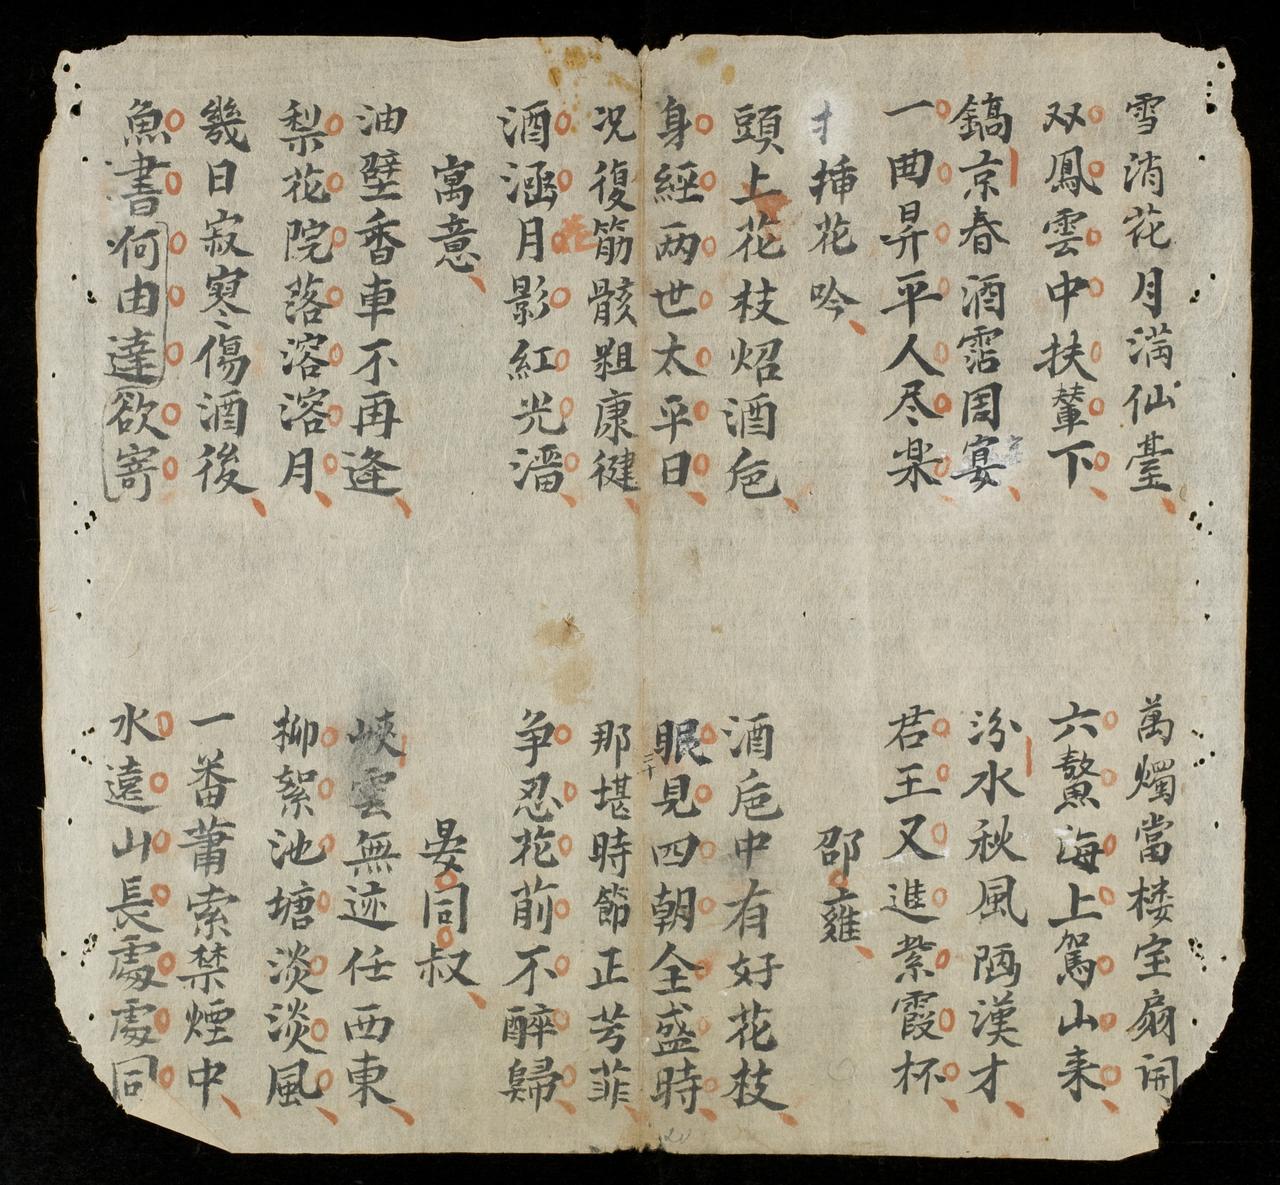 雪消花月滿仙臺
萬燭當楼宝扇開
双鳳雲中扶輦下
六鰲海上駕山来
鎬京春酒霑周宴
汾水秋風陋漢才
一曲昇平人尽楽
君王又進紫霞杯
插花吟
邵雍
頭上花枝炤酒卮
酒卮中有好花枝
身經两世太平日
眼見四朝全盛時
况復筋骸粗康健
那堪時節正芳菲
酒涵月影紅光溜
花
争忍花前不醉歸
寓意
晏同叔
油壁香車不再逢
峽雲無迹任西東
梨花院落溶溶月
柳絮池塘淡淡風
幾日寂寥傷酒後
一番蕭索禁煙中
魚書何由達欲寄
水遠山長處處同